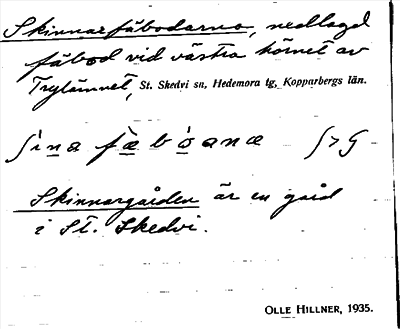 Skinnarfäbodarna, nedlagd
fäbod vid västra hörnet av
Trytämnet, St. Skedvi sn, Hedemora tg, Kopparbergs län.
Skinnargården är en gård
i St. Skedvi.
OLLE HILLNER, 1935.